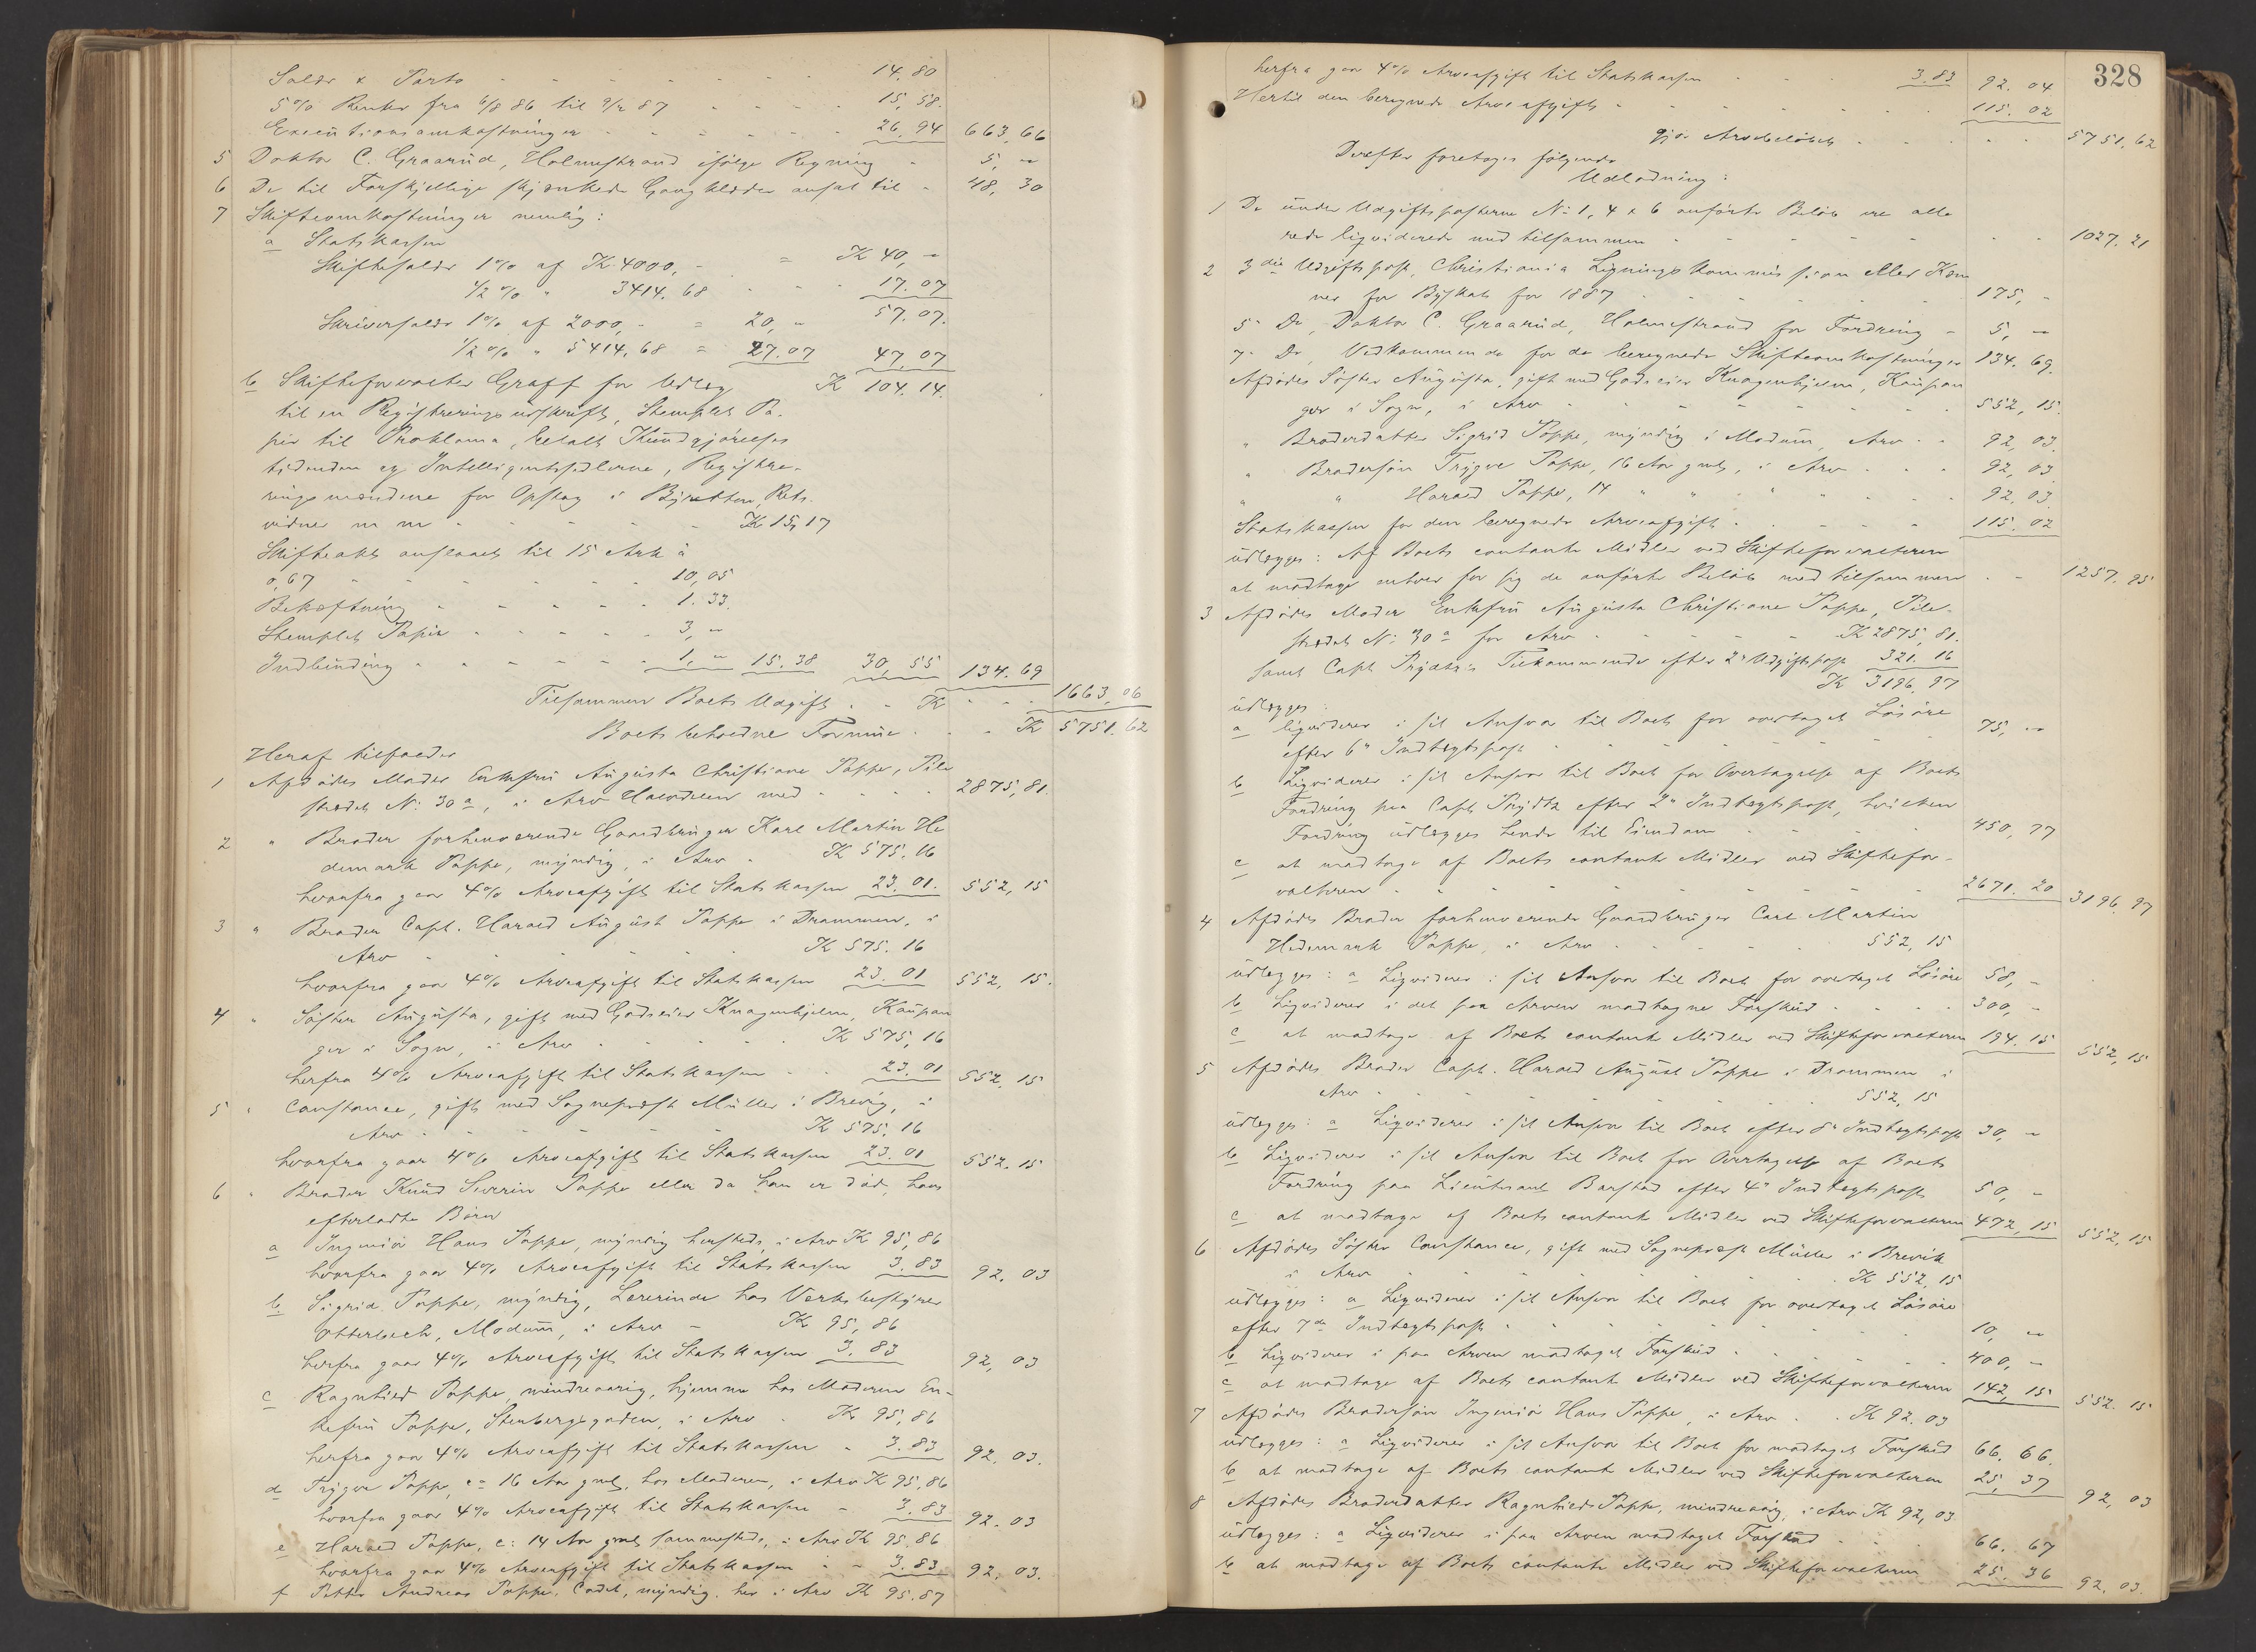 Salær & Porto - - - - 14.80
5% Renter fra 6/8 86 til 9/2 87 - - - - 15,58.
Executionsomkostninger - - - - 26.94 663,66
5 Doktor C. Graarud, Holmestrand ifølge Regning - 5, -
6 De til Forskjellige skjænkede Gangklæder ansat til - 48,30
7 Skifteomkostninger nemlig:
a Statskassen
Skiftesalær 1% af K. 4000,- = K 40, -
1/2% " 3414,68 - - - 17.07
57.07.
Skriversalær 1% af 2000,- = 20, -
1/2% " 5414,68 = 27.07 47,07
K 104.14.
b Skifteforvalter Graff for Udlæg
til en Registreringsudskrift, Stemplet Pa-
pir til Proklama, betalt Kundgjørelses
tidenden og Intelligentssedlerne, Registre-
ringsmændene for Opslag i Byretten, Rets-
vidner m m - - - - K 15,17
Skifteakt anslaaet til 15 Ark à
0,67 - - - - 10,05
Bekræftning - - - - 1.33.
Stemplet Papir - - - - 3, -
Indbinding - - - - 1, - 15.38 30,55 134.69
Tilsammen Boets Udgift - - K - - 1663,06
Boets beholdne Formue - - K 5751.62
Heraf tilfalder
1 Afdødes Moder Enkefru Augusta Christiane Poppe, Pile
strædet N: 30 a, i Arv Halvdelen med - - - - 2875,81.
2 " Broder forhenværende Gaardbruger Karl Martin He
demark Poppe, myndig, i Arv - K 575.16
hvorfra gaar 4% Arveafgift til Statskassen 23.01. 552,15
3 " Broder Capt. Harald August Poppe i Drammen, i
Arv - - - - K 575.16
hvorfra gaar 4% Arveafgift til Statskassen 23.01 552,15.
4 " Søster Augusta, gift med Godseier Knagenhjelm, Kaupan
ger i Sogn, i Arv - - - - K 575,16
herfra 4% Arveafgift til Statskassen - - 23.01 552.15
5 " Constance, gift med Sognepræst Müller i Brevig, i
Arv - - - - K 575.16
hvorfra gaar 4% Arveafgift til Statskassen 23.01 552.15
6 " Broder Knud Severin Poppe eller da han er død, hans
efterladte Børn
a Ingeniør Hans Poppe, myndig hersteds, i Arv K 95,86
hvorfra gaar 4% Arveafgift til Statskassen 3.83 92,03
b. Sigrid Poppe, myndig, Lærerinde hos Verksbestyrer
Otterbech, Modum, i Arv - K 95,86
herfra gaar 4% Arveafgift til Statskassen 3.83 92,03
c Ragnhild Poppe, mindreaarig, hjemme hos Moderen En-
kefru Poppe, Stenbergsgaden, i Arv - K 95,86
herfra gaar 4% Arveafgift til Statskassen - 3.83 92,03.
d Trygve Poppe, c: 16 Aar gml, hos Moderen, i Arv K 95,86
hvorfra gaar 4% Arveafgift til Statskassen - 3.83 92.03
e Harald Poppe, c: 14 Aar gml sammesteds, i Arv K 95.86
hvorfra gaar 4% Arveafgift til Statskassen - - 3.83 92,03.
f Petter Andreas Poppe, Cadet, myndig, her i Arv K 95.87
328
herfra gaar 4% Arveafgift til Statskassen - - - 3.83 92.04
Hertil den beregnede Arveafgift - - - - 115.02
gjør Arvebeløbet - - - - 5751.62
Derefter foretages følgende
Udlodning:
1 De under Udgiftsposterne N: 1, 4 & 6 anførte Beløb ere alle
rede liqviderede med tilsammen - - - - 1027.21
2 3die Udgiftspost, Christiania Ligningskommission eller Kæm
ner for Byskat for 1887 - - - - 175, -
5" Do, Doktor C. Graarud, Holmestrand for Fordring - 5, -
7" Do, Vedkommende for de beregnede Skifteomkostninger 134.69.
Afdødes Søster Augusta, gift med Godseier Knagenhjelm, Kaupan
ger i Sogn, i Arv - - - - 552,15.
" Broderdatter Sigrid Poppe, myndig i Modum, Arv - - 92,03.
" Brodersøn Trygve Poppe, 16 Aar gml, i Arv - - - 92,03
" " Harald Poppe, 14 " " " " - - 92,03
Statskassen for den beregnede Arveafgift - - - - 115.02
udlægges: Af Boets contante Midler ved Skifteforvalteren
at modtage enhver for sig de anførte Beløb med tilsammen - - 1257.95
3 Afdødes Moder Enkefru Augusta Christiane Poppe, Pile-
strædet N: 30 a for Arv - - - - K 2875,81.
samt Capt Prydtz's Tilkommende efter 2" Udgiftspost 321.16
K 3196.97
udlægges:
a liqviderer i sit Ansvar til Boet for overtaget Løsøre
efter 6" Indtægtspost - - - - 75, -
b Liqviderer i sit Ansvar til Boet for Overtagelse af Boets
Fordring paa Capt Prydtz efter 2" Indtægtspost, hvilken
Fordring udlægges hende til Eiendom - - - 450,77
c at modtage af Boets contante Midler ved Skiftefor-
valteren - - - - 2671.20 3196.97
4 Afdødes Broder forhenværende Gaardbruger Carl Martin
Hedemark Poppe, i Arv - - - - 552,15
udlægges: a Liqviderer i sit Ansvar til Boet for overtaget Løsøre 58, -
b Liqviderer i det paa Arven modtagne Forskud - - - 300, -
c at modtage af Boets contante Midler ved Skifteforvalteren 194.15 552,15
5 Afdødes Broder Capt. Harald August Poppe i Drammen i
Arv - - - - 552,15
udlægges: a Liqviderer i sit Ansvar til Boet efter 8" Indtægtspost 30, -
b Liqviderer i sit Ansvar til Boet for Overtagelse af Boets
Fordring paa Lieutenant Barstad efter 4" Indtægtspost 50, -
c at modtage af Boets contante Midler ved Skifteforvalteren 472,15 552,15
6 Afdødes Søster Constance, gift med Sognepræst Müller i Brevik
i Arv - - - - K 552.15
udlægges: a Liqviderer i sit Ansvar til Boet for overtaget Løsøre
efter 7de Indtægtspost - - - - 10, -
b Liqviderer i paa Arven modtaget Forskud - - - - 400, -
c at modtage af Boets contante Midler ved Skifteforvalteren 142,15 552.15
7 Afdødes Brodersøn Ingeniør Hans Poppe, i Arv - - K 92.03
udlægges: a Liqviderer i sit Ansvar til Boet for modtaget Forskud 66.66.
b at modtage af Boets contante Midler ved Skifteforvalteren 25,37 92,03
8 Afdødes Broderdatter Ragnhild Poppe, mindreaarig, i Arv K 92,03
udlægges: a Liqviderer i paa Arven modtaget Forskud - - - 66.67
b at modtage af Boets contante Midler ved Skifteforvalteren 25.36 92,03.